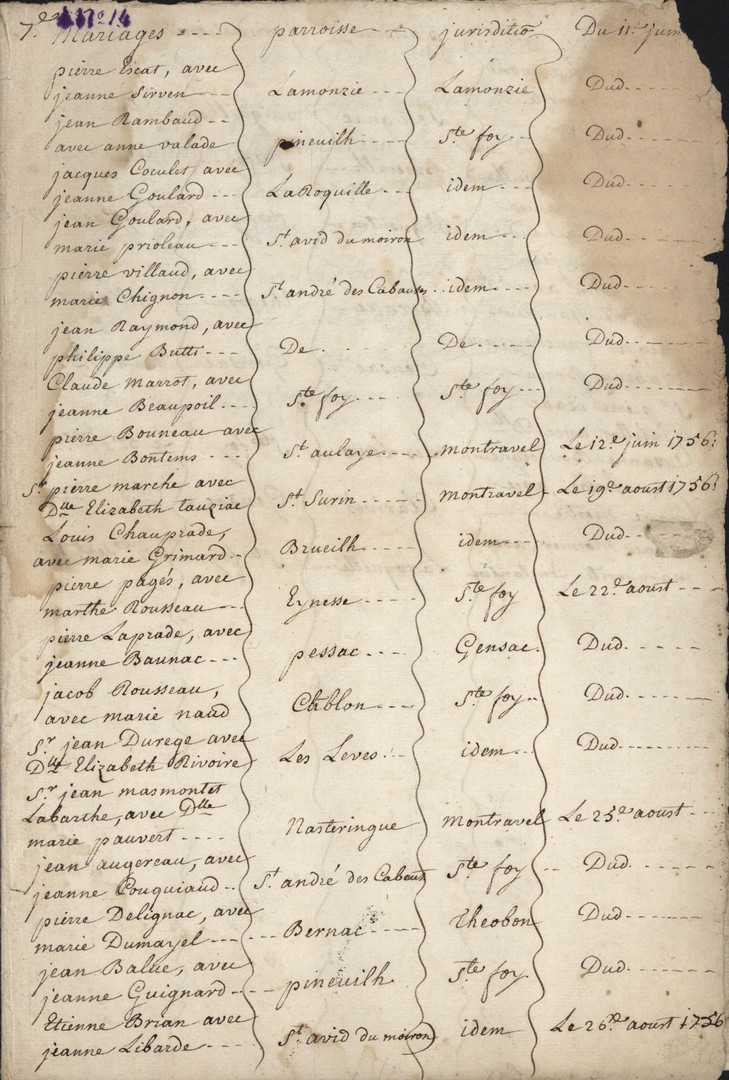 7.e N.o 14
Mariages parroisse jurisditio Du 11.e juin
pierre Escat, avec
jeanne Sirven Lamonzie Lamonzie Dud.
jean Rambaud
avec anne valade pineuilh Ste foy Dud.
jacques Coculet avec
jeanne Goulard LaRoquille idem Dud.
jean Goulard, avec
marie prioleau St avid du moiron idem Dud.
pierre villaud, avec
marie Chignon St andré des Cabautes idem Dud.
jean Raymond, avec
philippe Butti De De Dud.
Claude marrot, avec
jeanne Beaupoil Ste foy Ste foy Dud.
pierre Bouneau avec
jeanne Bontems St aulaye montravel Le 12.e juin 1756
Sr. pierre marche avec
Dlle Elizabeth tauziac St Surin montravel Le 19.e aoust 1756
Louis Chauprade,
avec marie Grimard Brueilh idem Dud.
pierre pagés, avec
marthe Rousseau Eynesse Ste foy Le 22.e aoust
pierre Laprade, avec
jeanne Baunac pessac Gensac Dud.
jacob Rousseau,
avec marie naud Ste foy Dud.
S.r jean Durege avec
Dlle Elizabeth Rivoire Les Leves idem Dud.
S.r jean masmontet
Labarthe, avec Dlle
marie pauvert Nasteringue montravel Le 25.e aoust
jean augereau, avec
jeanne Couquiaud St andré des Cabeuts Ste foy Dud.
pierre Delignac, avec
marie Dumayel Bernac theobon Dud.
jean Balue, avec
jeanne Guignard pineuilh Ste foy Dud.
Etienne Brian avec
jeanne Libarde St avid du moiron idem Le 26.e aoust 1756